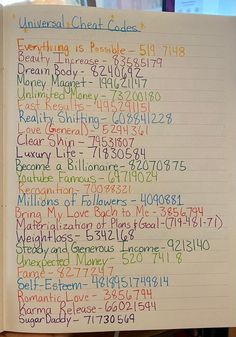 Universal Cheat Codes
Everything is Possible - 519 7148
Beauty Increase - 83585179
Dream Body - 8240692
Money Magnet - 199621147
Unlimited Money - 73200180
Fast Results - 495294115
Reality Shifting - 608841228
Love (General) - 5294361
Clear Skin - 74531807
Luxury Life - 71830584
Become a Billionaire - 82070875
Youtube Famous - 69719029
Recognition - 70088321
Millions of Followers - 4090881
Bring My Love Back to Me - 3856794
Materialization of Plans & Goal - (719-481-71)
Weightloss - 5342168
Steady and Generous Income - 9213140
Unexpected Money - 520 741 8
Fame - 8277247
Self-Esteem - 48189517 49814
Romantic Love - 3856794
Karma Release - 66021594
Sugar Daddy - 71730569